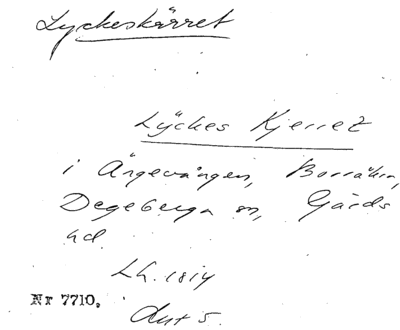 Lyckeskärret
Lÿckes Kjerret
i Ängevången, Borråkra,
Degeberga sn, Gärds
hd.
Lh. 1814
Akt 5.
Nr 7710.